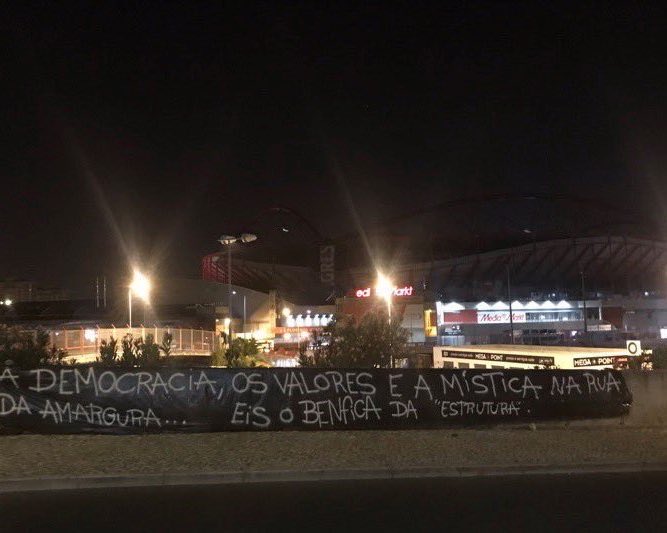 Media Markt
Media Markt
MEGA POINT
MEGA POINT
A DEMOCRACIA, OS VALORES E A MÍSTICA NA RUA
DA AMARGURA... EIS O BENFICA DA "ESTRUTURA".